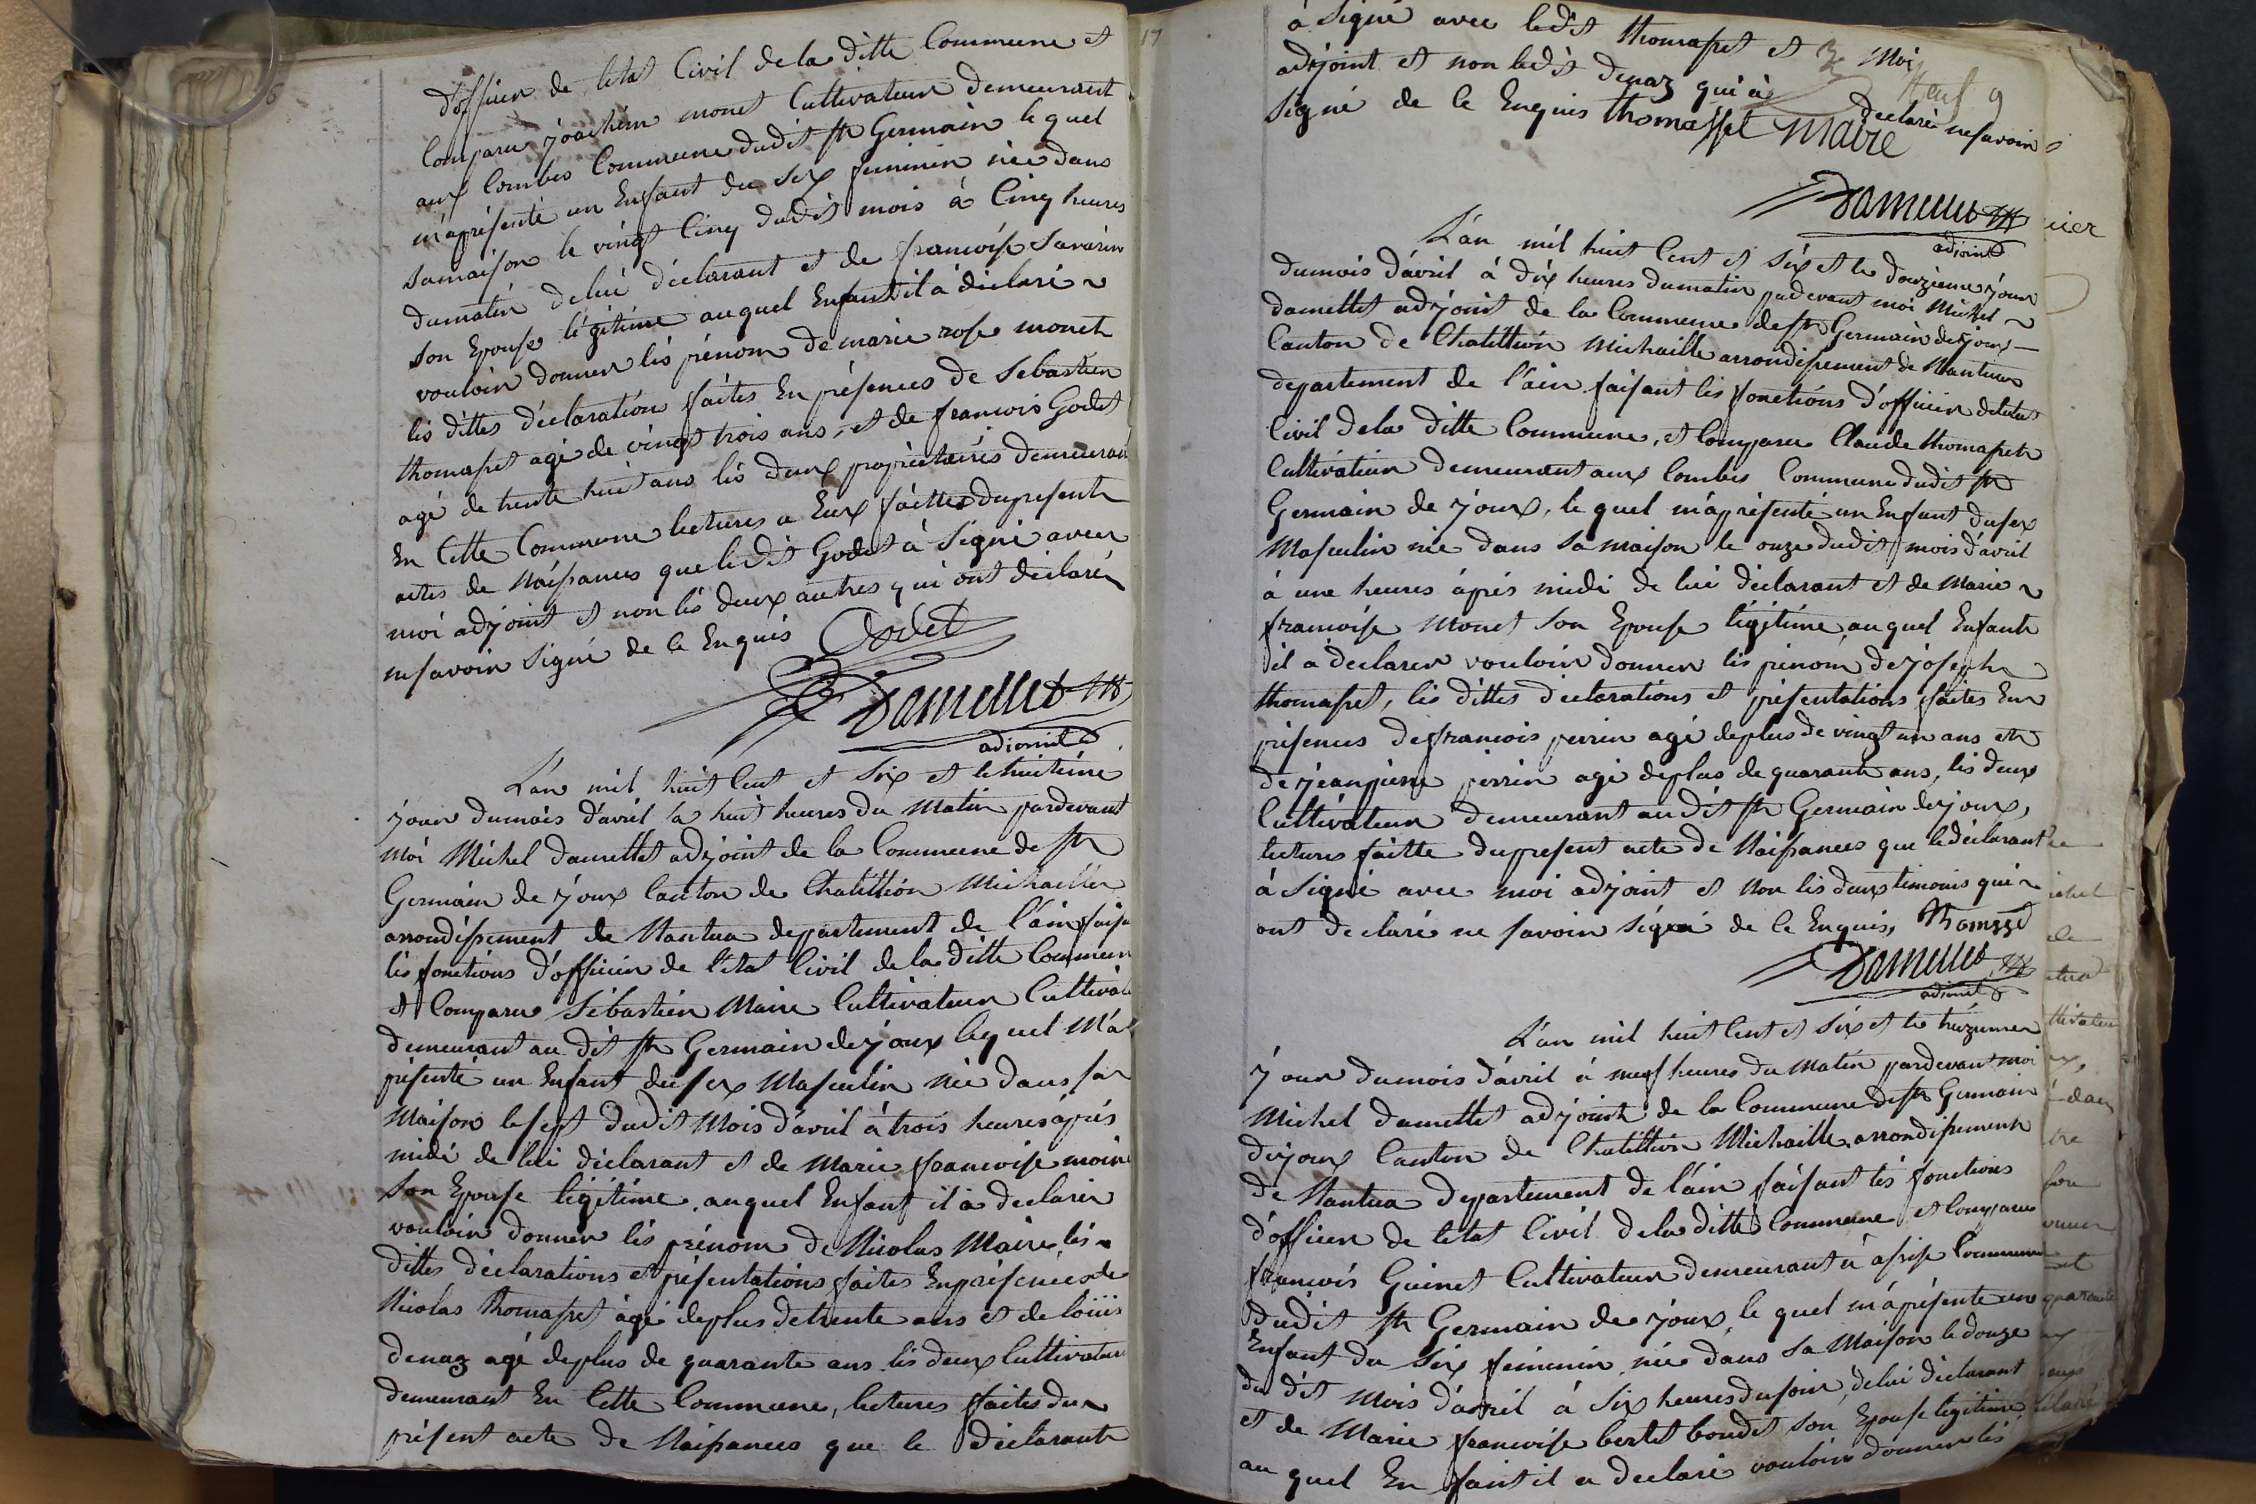 6
d'officier de letat Civil de la ditte Commune et
Comparu joachim monet Cultivateur demeurant
aux Combes Commune dudit St Germain le quel
m'aprésenté un Enfant du Sex feminin née dans
samaison le vingt Cinq dudit mois à Cinq heures
dumatin delui déclarant et de francoise Savarin
Son Epouse légitime auquel Enfant il à déclaré
vouloir donner lés prénom de marie rose monet
lés dittes déclaration faites En présences de Sebastien
thomasset agé de vingt trois ans, et de francois Godet
agé de trente huit ans lés deux propriétairés demeurant
En Cette Commune lectures a Eux faittes du present
actes de Naissances que ledit Godet à Signé avec
moi adjoint et non lés deux autres qui ont déclaré
nesavoir Signé de Ce Enquis Godet
Damellet
adjoint
L'an mil huit Cent et Six et le huitième
jour dumois d'avril à huit heures du Matin pardevant
Moi Michel damellet adjoint de la Commune de St
Germain de joux Canton de Chatillion Michaille
arrondissement de Nantua departement de l'ain faisa
lés fonctions d'officier de l'etat Civil de la ditte Commun
et Comparu Sébastien Maire Cultivateur Cultivat
demeurant au dit St Germain de joux lequel M'a
présenté un Enfant du sex Masculin née dans sa
Maison le sept dudit Mois d'avril à trois heures après
midi de lui déclarant et de Marie francoise moine
Son Epouse légitime auquel Enfant il à declarer
vouloir donner lés prénom de Nicolas Maire lés
dittes déclarations et présentations faites En présences de
Nicolas thomasset àgé deplus detrente ans et de loüis
denaz agé deplus de quarante ans lés deux Cultivateur
demeurant En Cette Commune, lectures faites du
présent acte de Naissances que le déclarant
17
à Signé avec ledit thomasset et Moi
adjoint et non ledit denaz qui à declaré nesavoir
Signé de Ce Enquis thomasset Maire
Damellet
adjoint
L'an mil huit Cent et Six et le douzieme jour
dumois d'avril à dix heures dumatin pardevant moi Michel
damellet adjoint de la Commune de St Germain de joux
Canton de Chatillion Michaille arrondissement de Nantua
departement de l'ain faisant lés fonctions d'officier deletat
Civil dela ditte Commune, et Comparu Claude thomasset
Cultivateur demeurant aux Combes Commune dudit St
Germain de joux, le quel m'aprésenté un Enfant dusex
Masculin née dans Sa maison le onze dudit mois d'avril
à une heures après midi de lui déclarant et de Marie
francoise Monet Son Epouse légitime auquel Enfant
il a declarer vouloir donner lés prénom de joseph
thomasset, lés dittes déclarations et présentations faites En
présences de francois perrin agé deplus de vingt un ans et
de jeanpierre perrin agé deplus de quarante ans, lés deux
Cultivateur demeurant au dit St Germain de joux,
lectures faitte dupresent acte de Naissances que le déclarant
à Signé avec moi adjoint et Non lés deux temoins qui
ont declaré ne savoir Signé de Ce Enquis, thomasset
Damellet
adjoint
L'an mil huit Cent et Six et le treizieme
jour dumois d'avril à neuf heures du Matin pardevant moi
Michel damellet adjoint de la Commune de St Germain
de joux Canton de Chatillion Michaille arrondissement
de Nantua departement de l'ain faisant lés fonctions
d'officier de letat Civil dela ditte Commune et Comparu
francois Guinet Cultivateur demeurant à Commune
dudit St Germain de joux, le quel m'aprésente un
Enfant du Six feminin née dans Sa Maison le douze
du dit Mois d'avril à Six heures dusoir, delui déclarant
et de Marie francoise bertet boudet Son Epouse legitime
au quel Enfant il a declaré vouloir donner lés